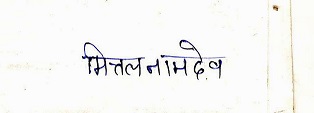 मित्तल नामदेव